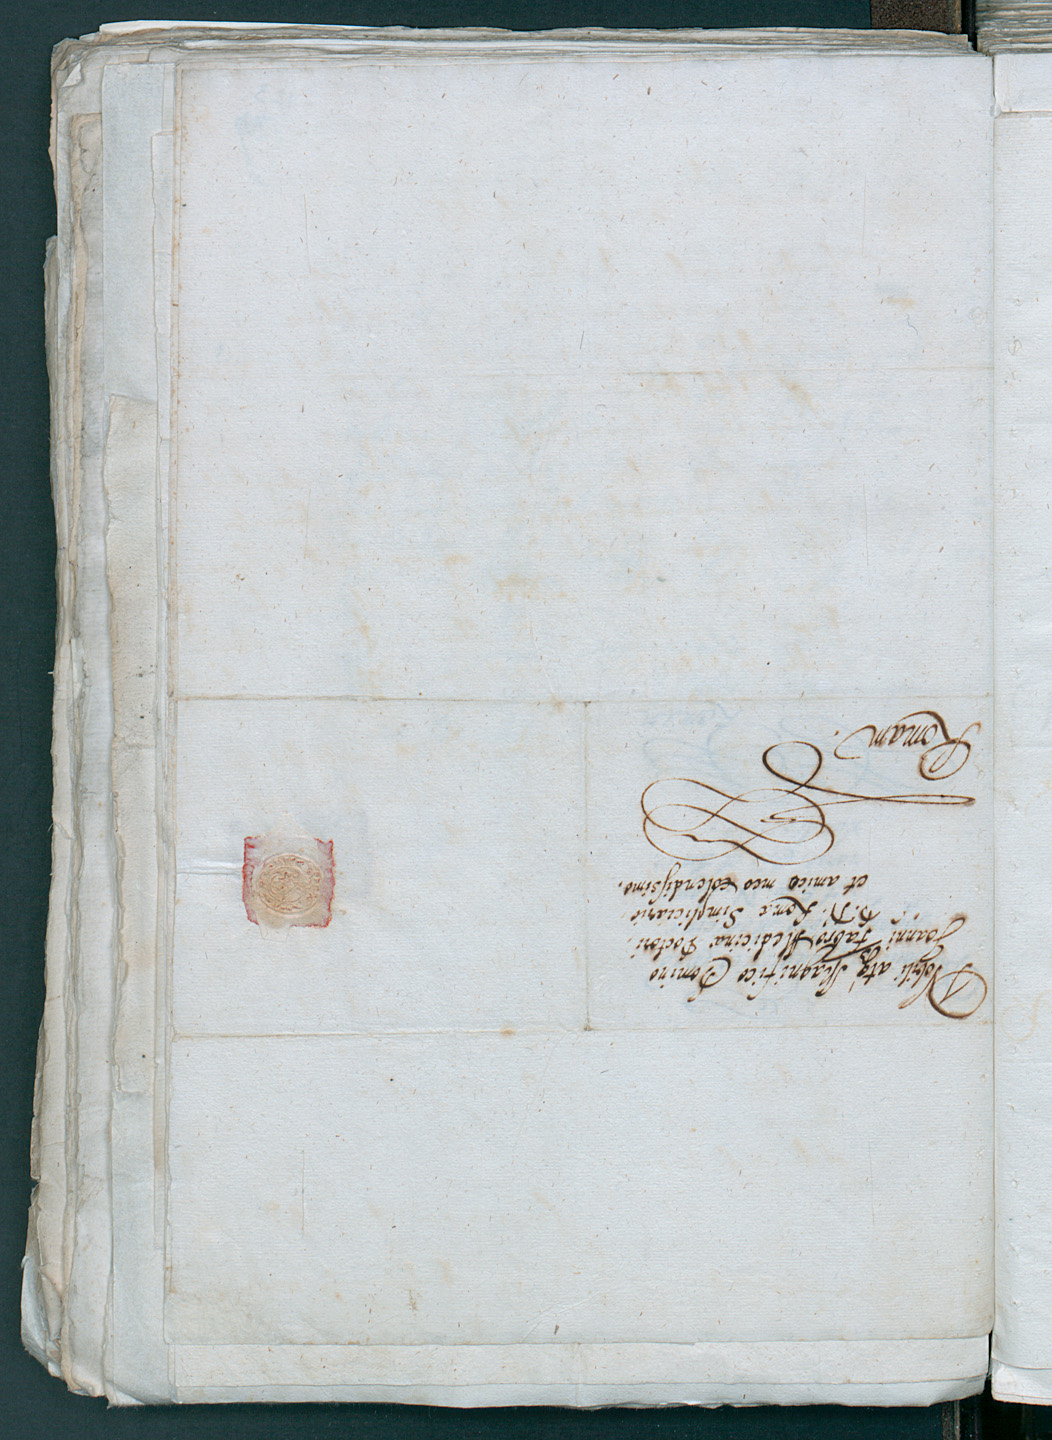 Nobili atq; Magnifico Domino
Joanni Fabro Medicinæ Doctori,
S.D.N. Romæ Simpliciario,
et amico meo Colendissimo.
Romam.